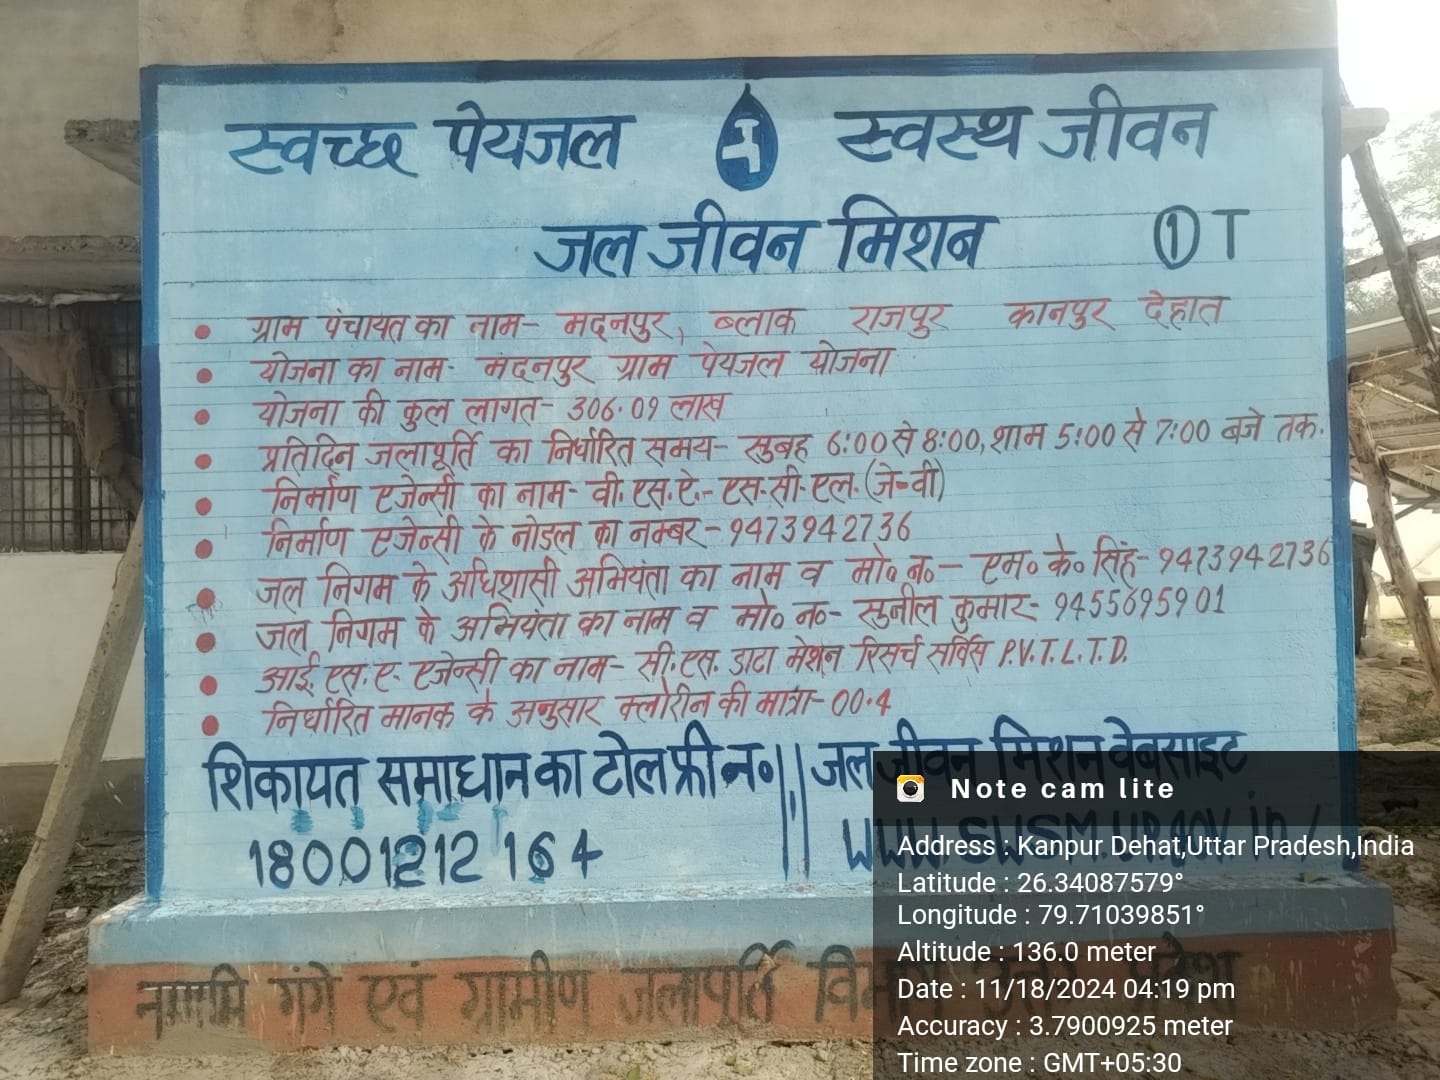 स्वच्छ पेयजल स्वस्थ जीवन
जल जीवन मिशन ① T
• ग्राम पंचायत का नाम- मदनपुर, ब्लाक राजपुर कानपुर देहात
• योजना का नाम- मदनपुर ग्राम पेयजल योजना
• योजना की कुल लागत- 306.09 लाख
• प्रतिदिन जलापूर्ति का निर्धारित समय- सुबह 6:00 से 8:00, शाम 5:00 से 7:00 बजे तक.
• निर्माण एजेन्सी का नाम- वी. एस. ऐ.- एस. सी. एल. (जे-वी)
• निर्माण एजेन्सी के नोडल का नम्बर- 9473942736
• जल निगम के अधिशासी अभियंता का नाम व मो० न०- एम० के० सिंह- 9473942736
• जल निगम के अभियंता का नाम व मो० न०- सुनील कुमार- 9455695901
• आई. एस. ए. एजेन्सी का नाम- सी. एस. डाटा मेशन रिसर्च सर्विस P.V.T.L.T.D.
• निर्धारित मानक के अनुसार क्लोरीन की मात्रा- 00.4
शिकायत समाधान का टोल फ्री न० || जल जीवन मिशन वेबसाइट
18001212164 || WWW.SWSM.UP.gov.in/
नमामि गंगे एवं ग्रामीण जलापूर्ति उत्तर प्रदेश
Note cam lite
Address : Kanpur Dehat,Uttar Pradesh,India
Latitude : 26.34087579°
Longitude : 79.71039851°
Altitude : 136.0 meter
Date : 11/18/2024 04:19 pm
Accuracy : 3.7900925 meter
Time zone : GMT+05:30